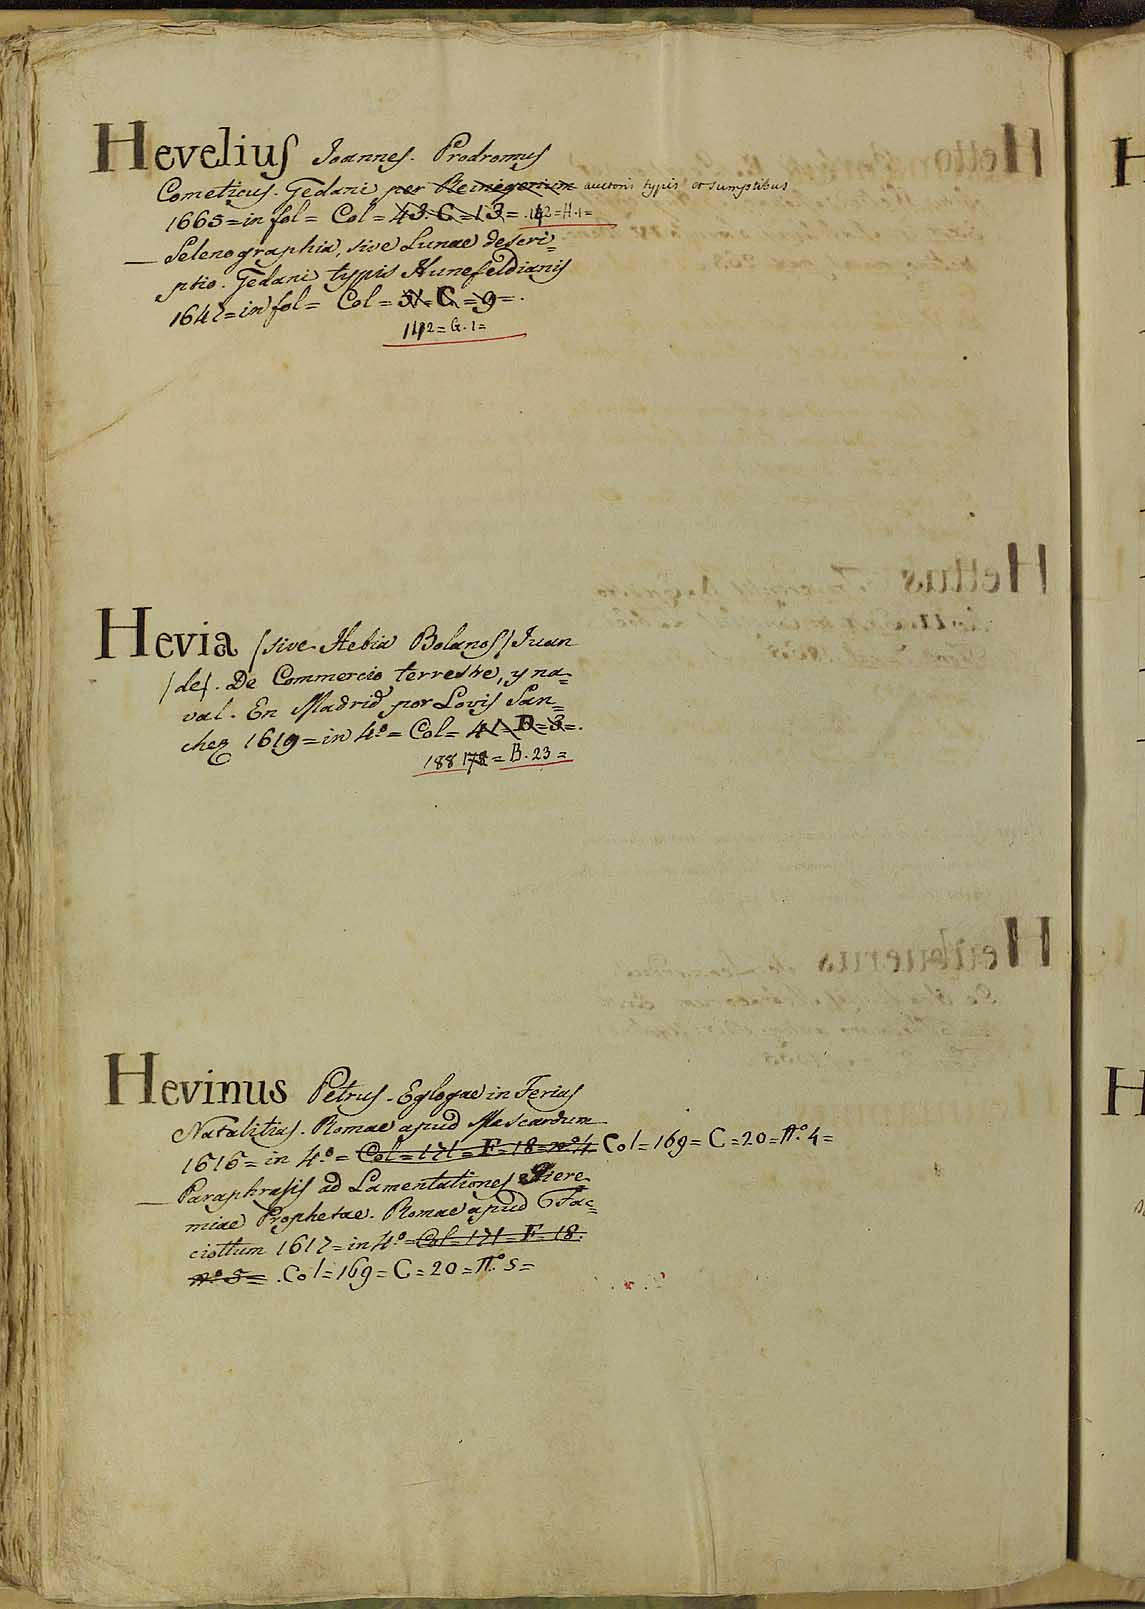 Hevelius Joannes. Prodromus
Cometicus. Gedani per Reinegerium auctoris typis et sumptibus
1665 = in fol = Col = 43. C = 13 = . 142 = H. 1 =
— Selenographia, sive Lunae descri=
ptio. Gedani typis Hunefeldianis
1647 = in fol = Col = 51. C. = 9 = .
142 = G. 1 =
Hevia (sive Hebia Bolanos) Juan
(de). De Commercio terrestre, y na=
val. En Madrid por Lovis San=
chez 1619 = in 4.º = Col = 41 = D = 3 = .
188 178 = B. 23 =
Hevinus Petrus. Eglogae in Ferias
Natalitias. Romae apud Mascardum
1616 = in 4.º = Col = 171 = F = 18 = nº 4. Col = 169 = C = 20 = n.º 4 =
— Paraphrasis ad Lamentationes Hiere
miae Prophetae. Romae apud Fac=
ciottum 1617 = in 4.º = Col = 171 = F = 18.
nº 5 = . Col = 169 = C = 20 = n.º 5 =